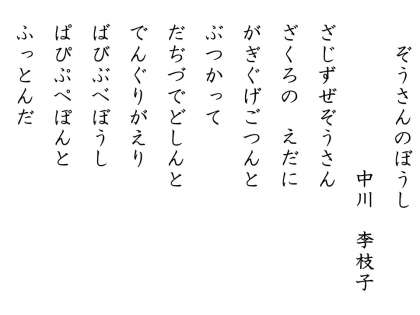 ぞうさんのぼうし
中川 李枝子
ざじずぜぞうさん
ざくろの えだに
がぎぐげごつんと
ぶつかって
だぢづでどしんと
でんぐりがえり
ばびぶべぼうし
ぱぴぷぺぽんと
ふっとんだ